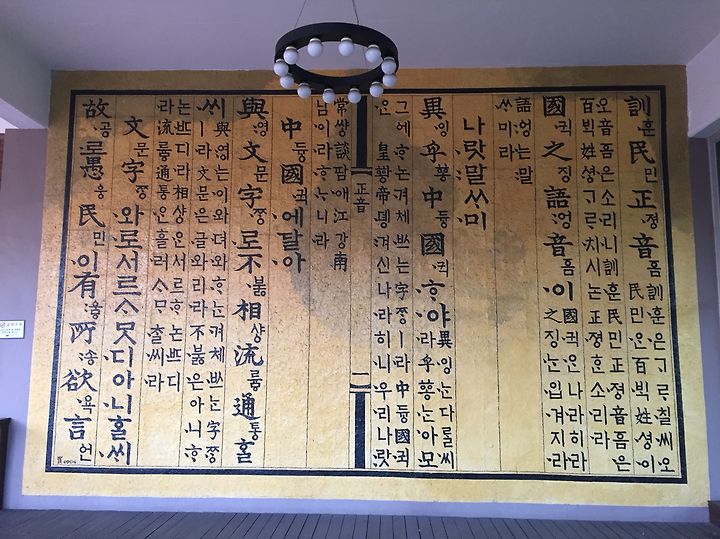 訓훈民민正졍音흠訓훈은ᄀᆞᄅᆞ칠씨오
民민은百ᄇᆡᆨ姓셩이
오音흠은소리니訓훈民민正졍音흠은
百ᄇᆡᆨ姓셩ᄀᆞᄅᆞ치시논正졍ᄒᆞᆫ소리라
國귁之징語엉音흠이國귁ᄋᆞᆫ나라히라
之징ᄂᆞᆫ입겨지라
語엉는말
ᄊᆞ미라
나랏말ᄊᆞ미
異잉乎ᅘᅩᆼ中듕國귁ᄒᆞ야異잉ᄂᆞᆫ다ᄅᆞᆯ씨
라乎ᅘᅩᆼᄂᆞᆫ아모
그ᅌᅦᄒᆞ논겨체ᄡᅳ는字ᄍᆞᆼㅣ라中듕國귁
ᄋᆞᆫ皇황帝뎽겨신나라히니우리나랏
正音
一
常썅談땀애江강南
남이라ᄒᆞᄂᆞ니라
中듕國귁에달아
與영文문字ᄍᆞᆼ로不불相샹流륭通통ᄒᆞᆯ
ᄊᆡ與영는이와뎌와ᄒᆞ논겨체ᄡᅳ는字ᄍᆞᆼ
ㅣ라文문은글와리라不불은아니ᄒᆞ
논ᄠᅳ디라相샹ᄋᆞᆫ서르ᄒᆞ논ᄠᅳ디
라流륭通통은흘러ᄉᆞᄆᆞᄎᆞᆯ씨라
文문字ᄍᆞᆼ와로서르ᄉᆞᄆᆞᆺ디아니ᄒᆞᆯᄊᆡ
故공로愚웅民민이有ᅌᅮᇢ所송欲욕言언